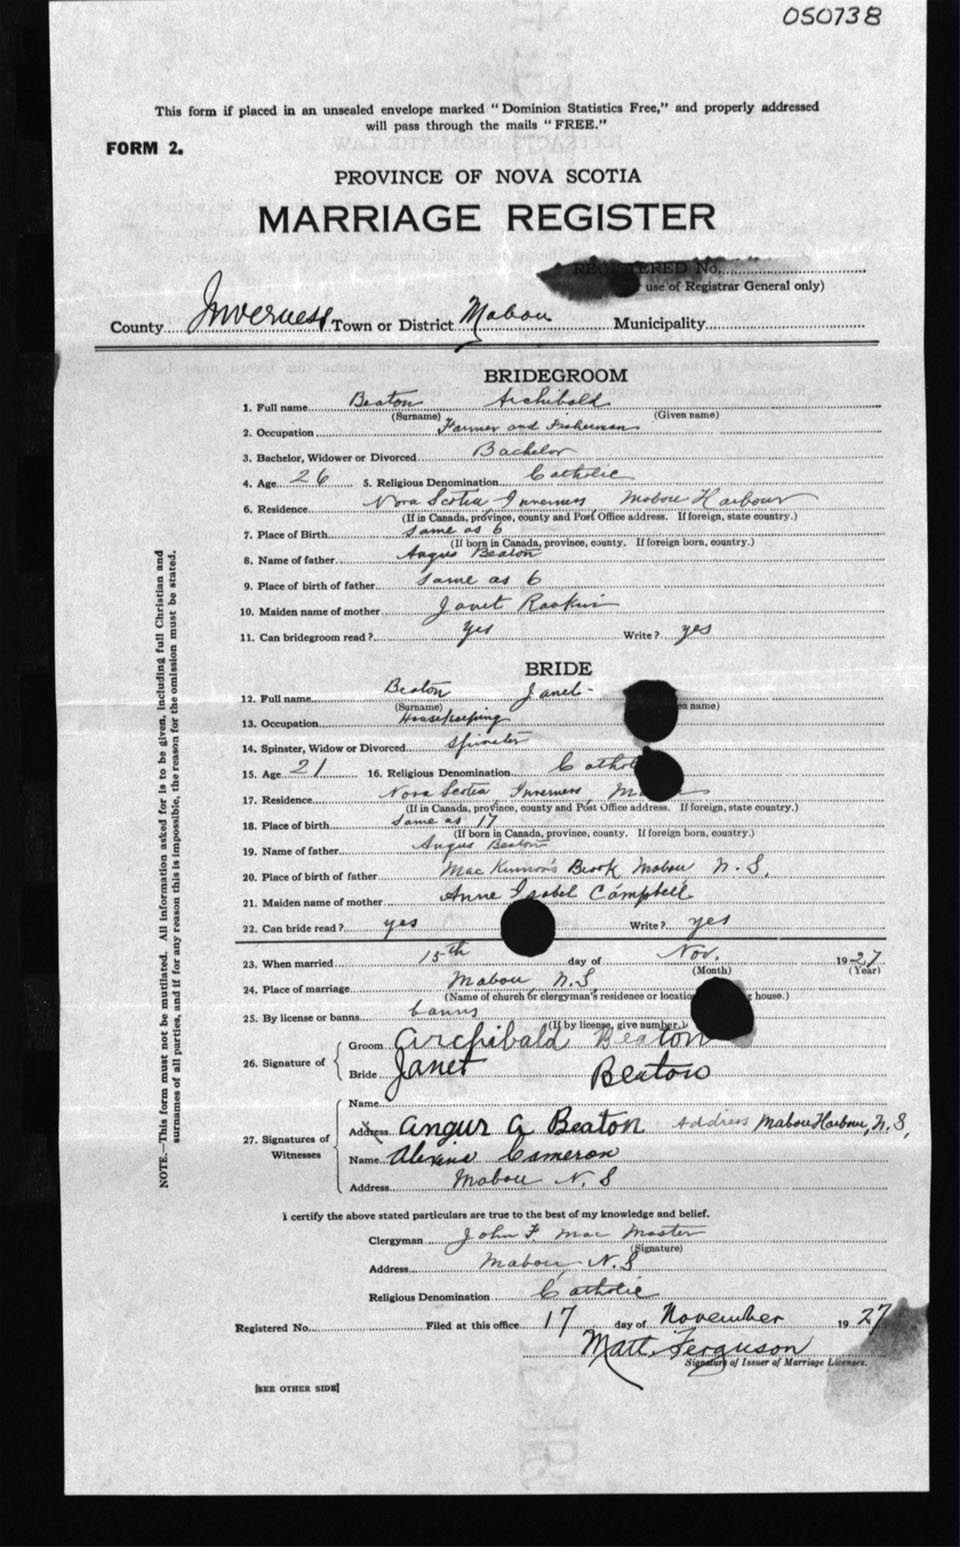 050738
This form if placed in an unsealed envelope marked "Dominion Statistics Free," and properly addressed
will pass through the mails "FREE."
FORM 2.
PROVINCE OF NOVA SCOTIA
MARRIAGE REGISTER
REGISTERED No.
use of Registrar General only)
County Inverness Town or District Mabou Municipality
BRIDEGROOM
1. Full name Beaton Archibald
(Surname) (Given name)
2. Occupation Farmer and Fisherman
3. Bachelor, Widower or Divorced Bachelor
4. Age 26 5. Religious Denomination Catholic
6. Residence Nova Scotia Inverness Mabou Harbour
(If in Canada, province, county and Post Office address. If foreign, state country.)
7. Place of Birth same as 6
(If born in Canada, province, county. If foreign born, country.)
8. Name of father Angus Beaton
9. Place of birth of father same as 6
10. Maiden name of mother Janet Rankin
11. Can bridegroom read? yes Write? yes
BRIDE
12. Full name Beaton Janet
(Surname) en name)
13. Occupation Housekeeping
14. Spinster, Widow or Divorced Spinster
15. Age 21 16. Religious Denomination Cathol
17. Residence Nova Scotia Inverness M
(If in Canada, province, county and Post Office address. If foreign, state country.)
18. Place of birth same as 17
(If born in Canada, province, county. If foreign born, country.)
19. Name of father Angus Beaton
20. Place of birth of father Mac Kinnon's Brook Mabou N. S.
21. Maiden name of mother Anne Isabel Campbell
22. Can bride read? yes Write? yes
23. When married 15th day of Nov. 1927
(Month) (Year)
24. Place of marriage Mabou N.S
(Name of church or clergyman's residence or locatio g house.)
25. By license or banns banns
(If by license, give number.)
26. Signature of Groom Archibald Beaton
Bride Janet Beaton
27. Signatures of Witnesses
Name
Address Angus A Beaton Address Mabou Harbour, N. S,
Name Alexina Cameron
Address Mabou N. S
I certify the above stated particulars are true to the best of my knowledge and belief.
Clergyman John F. Mac Master
(Signature)
Address Mabou N.S
Religious Denomination Catholic
Registered No. Filed at this office 17 day of November 1927
Matt. Ferguson
Signature of Issuer of Marriage Licenses.
[SEE OTHER SIDE]
NOTE.—This form must not be mutilated. All information asked for is to be given, including full Christian and
surnames of all parties, and if for any reason this is impossible, the reason for the omission must be stated.